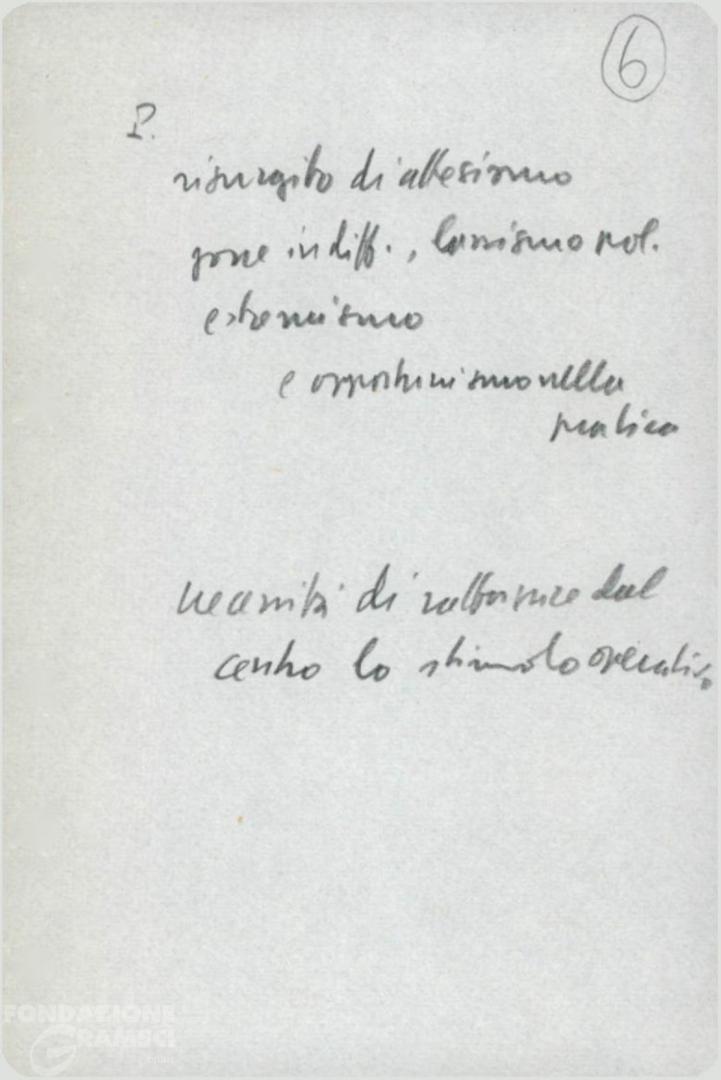 6
P.
risurgito di attesismo
zone indiff., lassismo pol.
estremismo
e opportunismo nella
pratica
necessità di rafforzare dal
centro lo stimolo operativo
FONDAZIONE
GRAMSCI